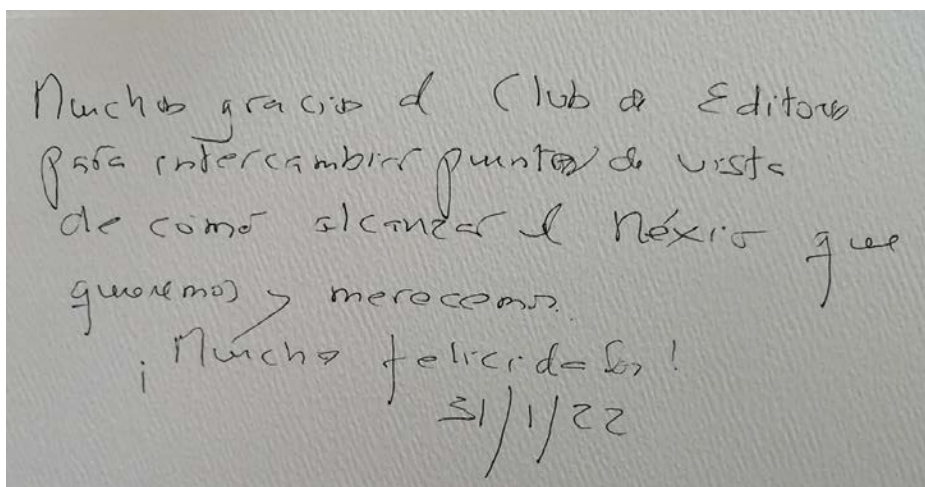 Muchas gracias al Club de Editores
para intercambiar puntos de vista
de como alcanzar el México que
queremos y merecemos.
¡Muchas felicidades!
31/1/22